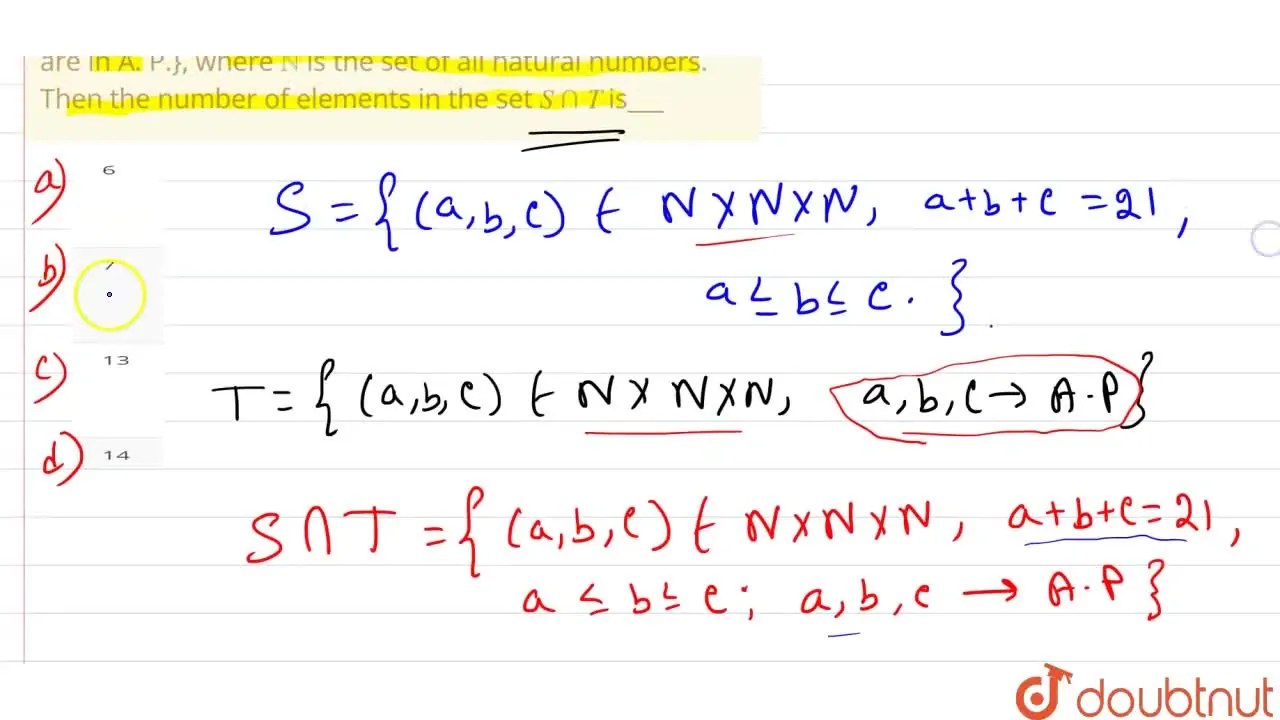 are in A. P.}, where N is the set of all natural numbers.
Then the number of elements in the set S ∩ T is___
a) 6
S = { (a, b, c) ∈ N X N X N, a + b + c = 21,
b) 7
a ≤ b ≤ c. }
c) 13
T = { (a, b, c) ∈ N X N X N, a, b, c → A.P }
d) 14
S ∩ T = { (a, b, c) ∈ N X N X N, a + b + c = 21,
a ≤ b ≤ c; a, b, c → A.P }
doubtnut